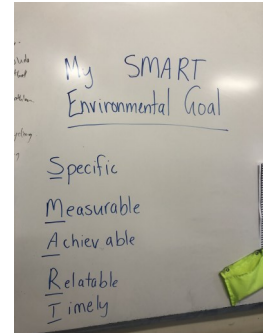 My SMART
Environmental Goal
Specific
Measurable
Achievable
Relatable
Timely